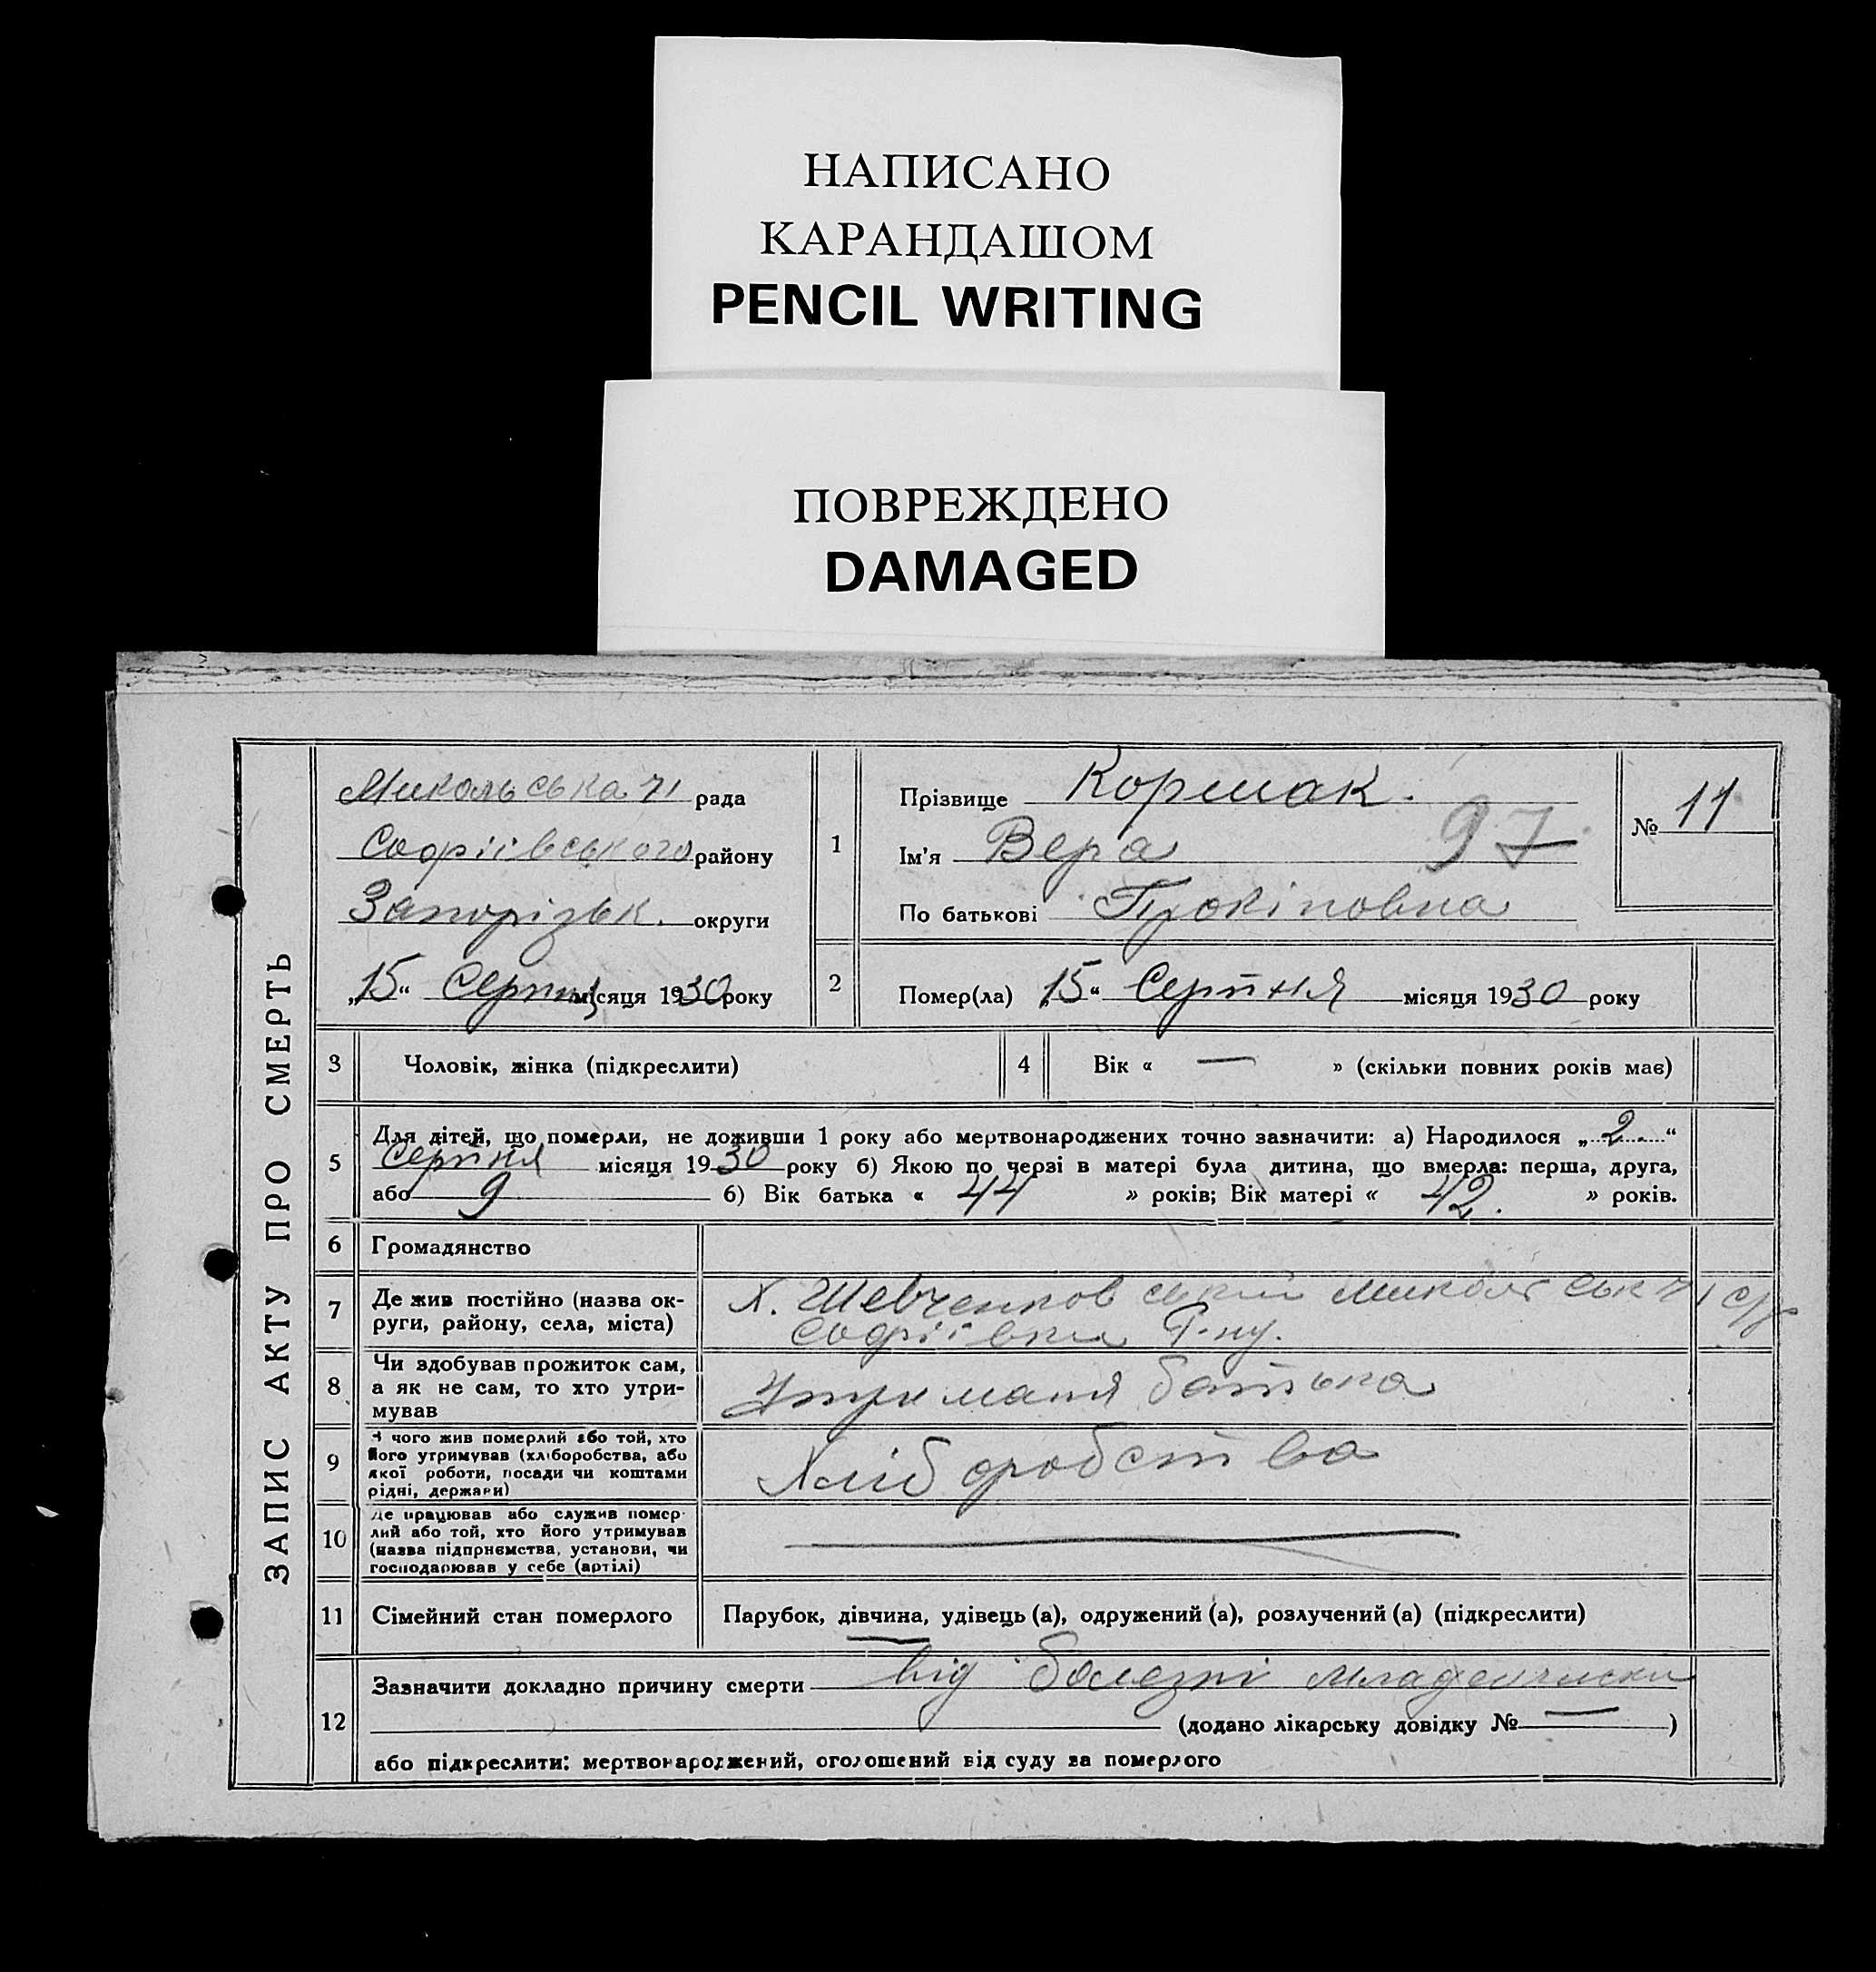 НАПИСАНО
КАРАНДАШОМ
PENCIL WRITING
ПОВРЕЖДЕНО
DAMAGED
ЗАПИС АКТУ ПРО СМЕРТЬ
Микольська рада
Софіївського району
Запорізьк. округи
„15“ Серпня місяця 1930 року
1
Прізвище Коршак.
Ім'я Вера 97
По батькові Прокіповна
№ 11
2
Помер(ла) „15“ Серпня місяця 1930 року
3 Чоловік, жінка (підкреслити)
4 Вік « — » (скільки повних років має)
5
Для дітей, що померли, не доживши 1 року або мертвонароджених точно зазначити: а) Народилося „2“
Серпня місяця 1930 року б) Якою по черзі в матері була дитина, що вмерла: перша, друга,
або 9 б) Вік батька « 44 » років; Вік матері « 42. » років.
6 Громадянство
7
Де жив постійно (назва ок-
руги, району, села, міста)
Х. Шевченковський с/р
Софіївки Р-ну.
8
Чи здобував прожиток сам,
а як не сам, то хто утри-
мував
Утриманя батька
9
З чого жив померлий або той, хто
його утримував (хліборобства, або
якої роботи, посади чи коштами
рідні, держави)
Хліборобства
10
Де працював або служив помер-
лий або той, хто його утримував
(назва підприємства, установи, чи
господарював у себе (артілі)
11 Сімейний стан померлого
Парубок, дівчина, удівець (а), одружений (а), розлучений (а) (підкреслити)
12
Зазначити докладно причину смерти від болезні
(додано лікарську довідку № — )
або підкреслити: мертвонароджений, оголошений від суду за померлого